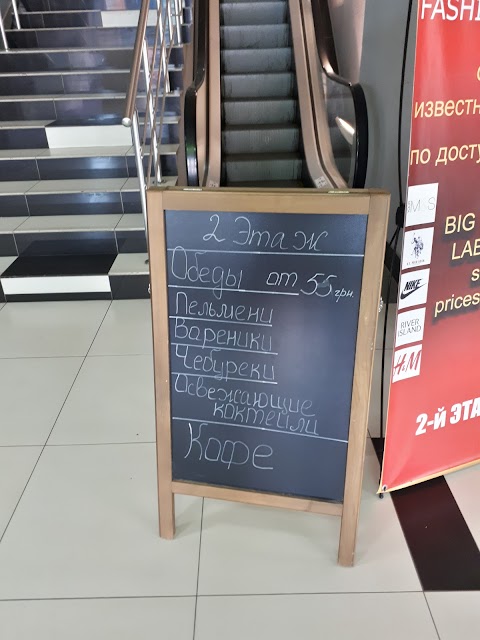 2 Этаж
Обеды от 55 грн.
Пельмени
Вареники
Чебуреки
Освежающие
коктейли
Кофе
FASHI
известн
по досту
M&S
BIG
LAB
s
prices
NIKE
RIVER
ISLAND
H&M
2-й ЭТА